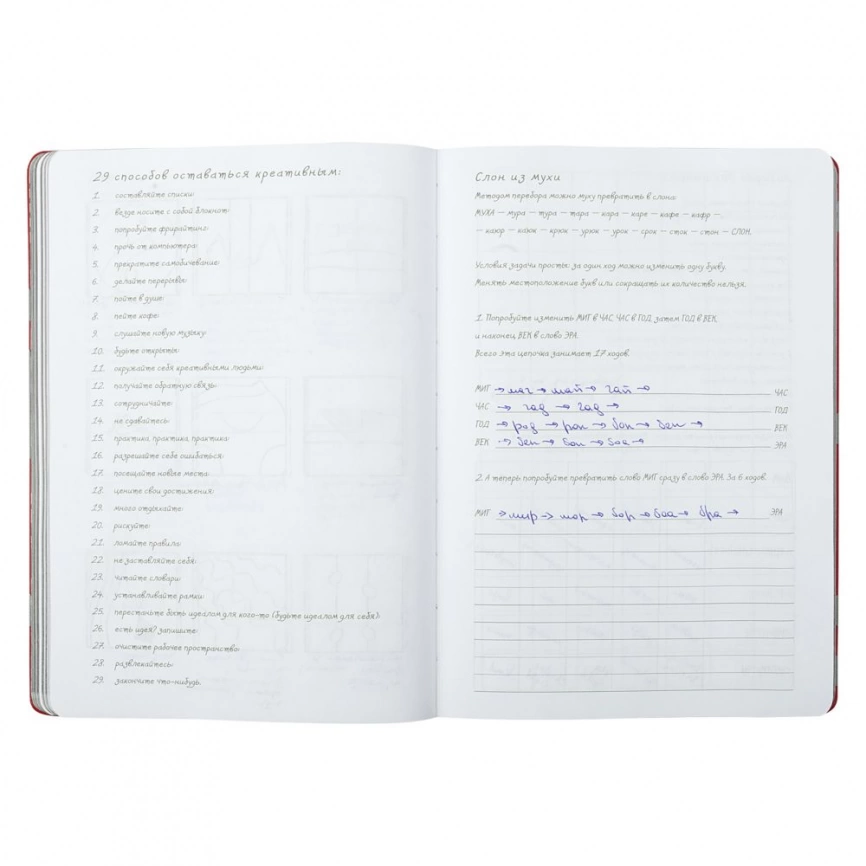 29 способов оставаться креативным:
1. составляйте списки;
2. везде носите с собой блокнот;
3. попробуйте фрирайтинг;
4. прочь от компьютера;
5. прекратите самобичевание;
6. делайте перерывы;
7. пойте в душе;
8. пейте кофе;
9. слушайте новую музыку;
10. будьте открыты;
11. окружайте себя креативными людьми;
12. получайте обратную связь;
13. сотрудничайте;
14. не сдавайтесь;
15. практика, практика, практика;
16. разрешайте себе ошибаться;
17. посещайте новые места;
18. цените свои достижения;
19. много отдыхайте;
20. рискуйте;
21. ломайте правила;
22. не заставляйте себя;
23. читайте словари;
24. устанавливайте рамки;
25. перестаньте быть идеалом для кого-то (будьте идеалом для себя);
26. есть идея? запишите;
27. очистите рабочее пространство;
28. развлекайтесь;
29. закончите что-нибудь.
Слон из мухи
Методом перебора можно муху превратить в слона:
МУХА — мура — тура — тара — кара — каре — кафе — кафр —
— каюр — каюк — крюк — урюк — урок — срок — сток — стон — СЛОН.
Условия задачи просты: за один ход можно изменить одну букву.
Менять местоположение букв или сокращать их количество нельзя.
1. Попробуйте изменить МИГ в ЧАС, ЧАС в ГОД, затем ГОД в ВЕК,
и наконец ВЕК в слово ЭРА.
Всего эта цепочка занимает 17 ходов.
МИГ → маг → май → чай → ЧАС
ЧАС → чад → гад → ГОД
ГОД → род → рок → бок → бек → ВЕК
ВЕК → бек → бок → боа → ЭРА
2. А теперь попробуйте превратить слово МИГ сразу в слово ЭРА. За 6 ходов.
МИГ → мир → мор → бор → боа → бра → ЭРА